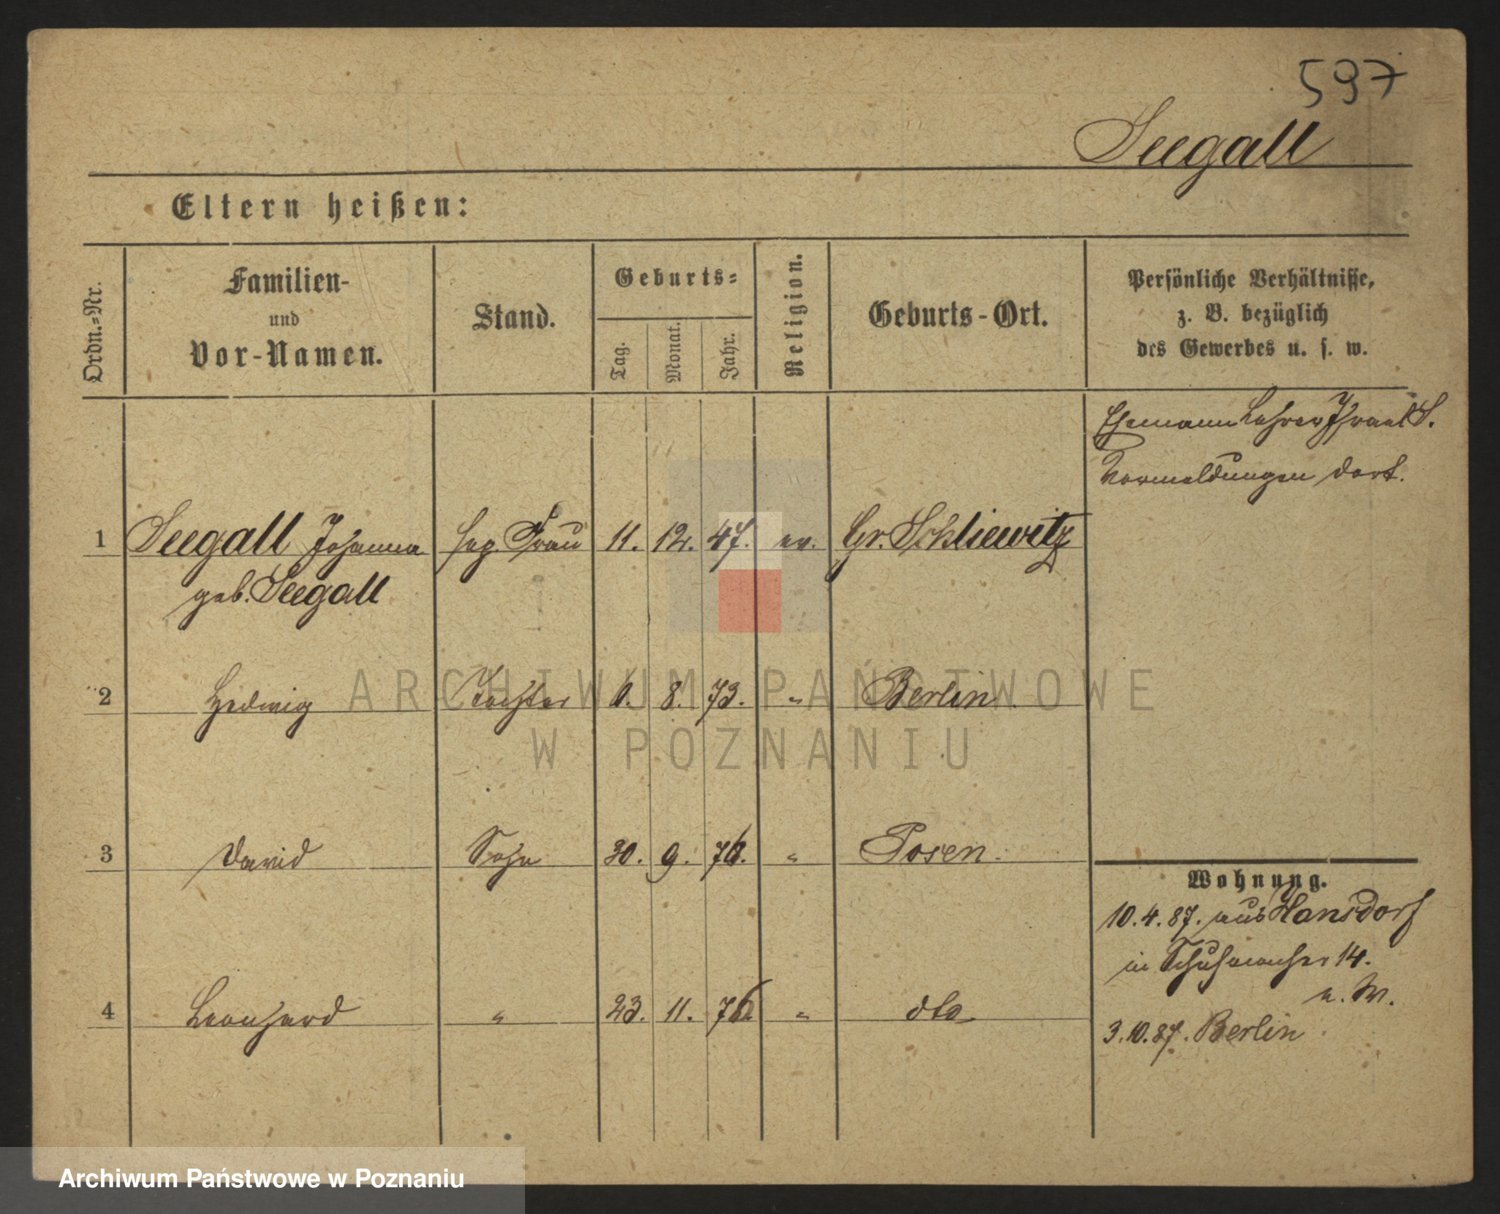 597
Seegall
Eltern heißen:
Ordn.-Nr.
Familien-
und
Vor-Namen.
Stand.
Geburts-
Tag.
Monat.
Jahr.
Religion.
Geburts-Ort.
Persönliche Verhältnisse,
z. B. bezüglich
des Gewerbes u. s. w.
Ehemann Lehrer Israel S.
Vormeldungen dort.
1 Seegall Johanna sep. Frau 11. 12. 47. Gr. Schliewitz
geb. Seegall
2 Hedwig Tochter 8. 73. " Berlin.
3 David Sohn 30. 9. 76. " Posen.
Wohnung.
10.4.87. aus Hansdorf
in Schuhmacher 14.
4 Leonhard " 23. 11. 76. " dto
3.10.87. Berlin
ARCHIWUM PAŃSTWOWE
W POZNANIU
Archiwum Państwowe w Poznaniu